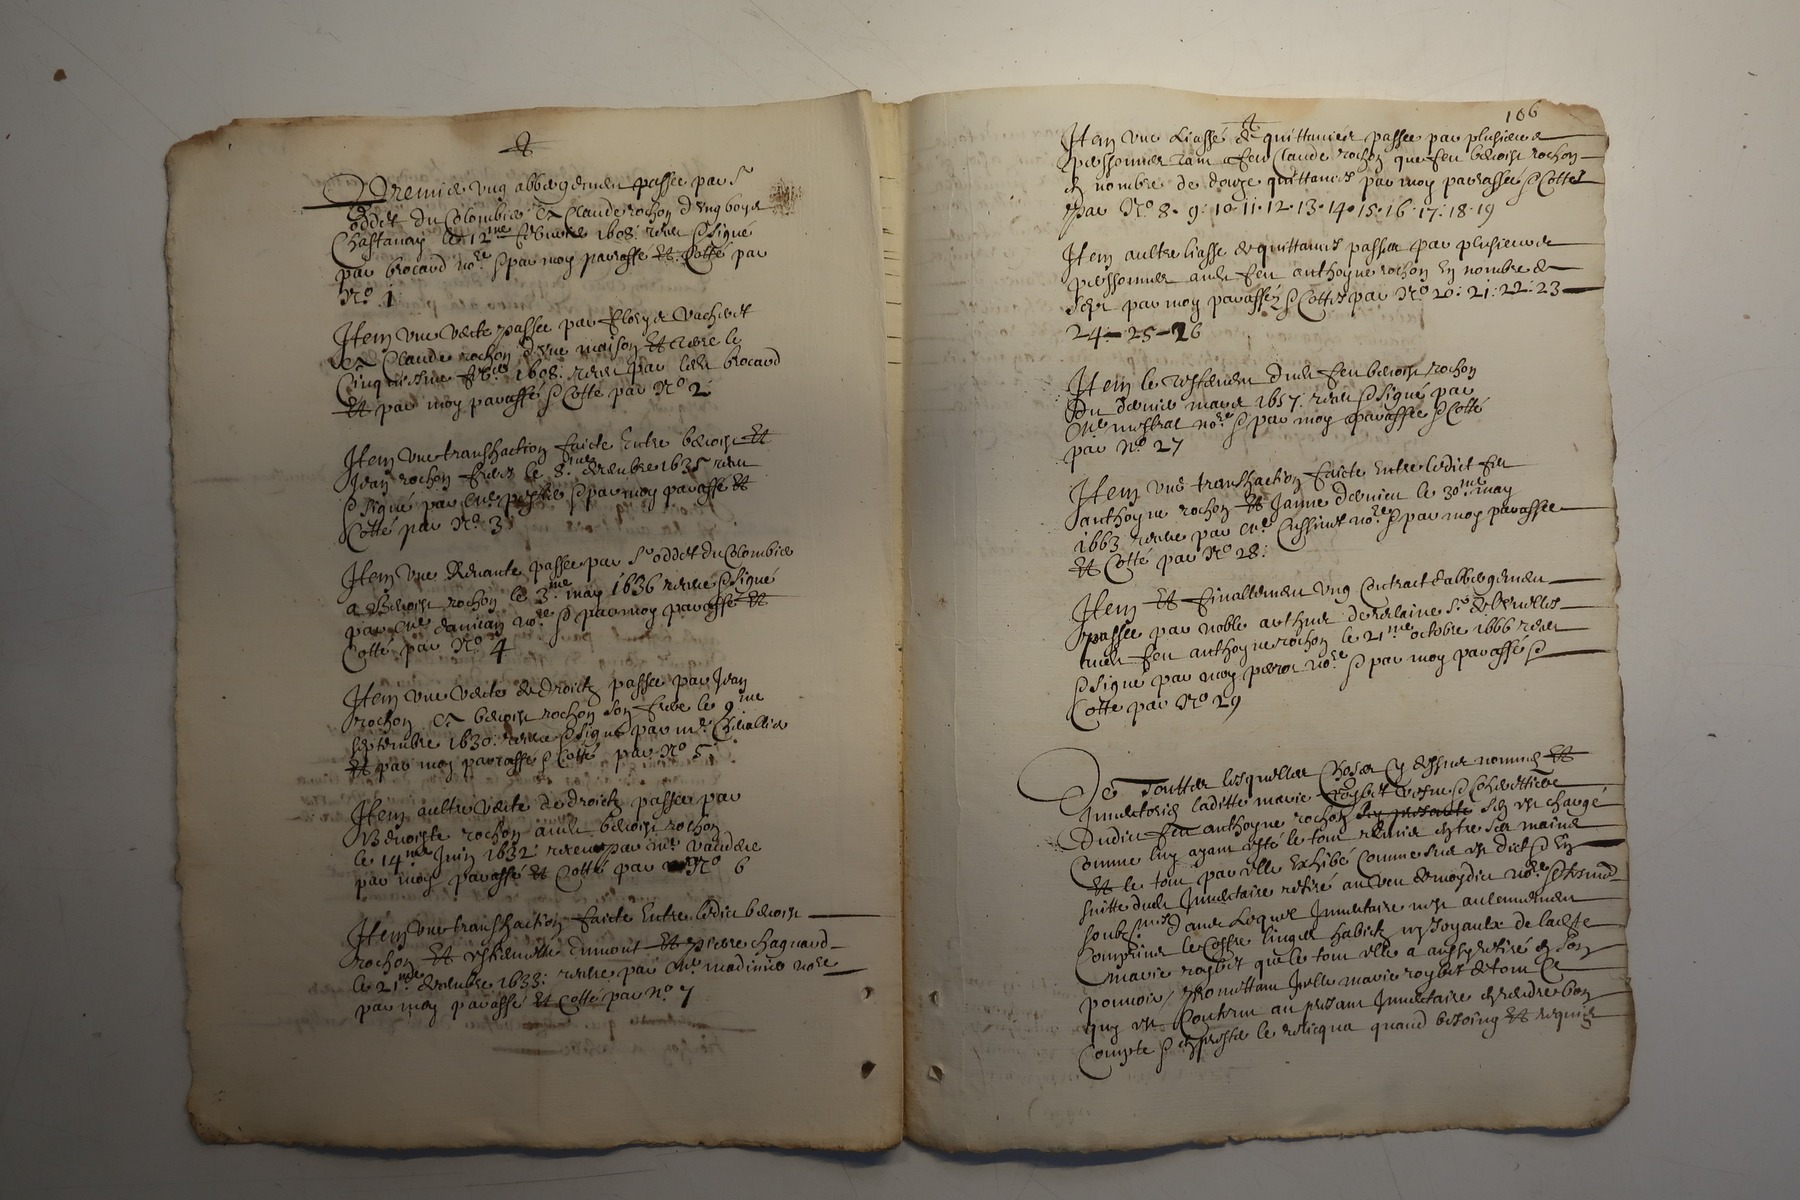 Premier ung abbergement passée par Sr
oddet du Colombier Et Claude rochon d'ung boys
Chastanay le 12me febvrier 1608 receu & signé
par brocard nore & par moy paraffé Et Cotté par
No 1
Item une vente passée par
Claude rochon d'une maison Et terre le
1608 receu par brocard
Et par moy paraffé & Cotté par No 2
Item une transhaction faicte Entre benoist Et
Jean rochon freres le 8me decembre 1635 receu
& signé par & par moy paraffé Et
Cotté par No 3
Item une passée par Sr oddet du Colombier
a benoist rochon le 3me may 1636 receue & signé
par Me nore & par moy paraffé Et
Cotté par No 4
Item une vente de droictz passée par Jean
rochon benoist rochon son frere le 9me
septembre 1630 receue & signé par Me
Et par moy paraffé & Cotté par No 5
Item aultre vente de droictz passée par
Benoiste rochon audit benoist rochon
le 14me Juin 1632 receu par Me
par moy paraffé Et Cotté par No 6
Item une transhaction faicte Entre ledict benoist
rochon Et dumont Et pierre chaguard
le 21me decembre 1633 receue par Me nore
par moy paraffé Et Cotté par No 7
106
Item une Liasse de quittances passée par plusieurs
personnes tant a feu Claude rochon que feu benoist rochon
en nombre de douze quittances par moy parrafée & Cottes
par No 8. 9. 10. 11. 12. 13. 14. 15. 16. 17. 18. 19
Item aultre liasse de quittances passée par plusieurs
personnes audit feu anthoyne rochon en nombre de
sept par moy paraffés & Cottés par No 20: 21: 22: 23
24 - 25 - 26
Item le testament dudit feu benoist rochon
du dernier mars 1657 receu & signé par
Me mistral nore & par moy paraffée & Cotté
par No 27
Item une transhaction faicte Entre ledict feu
anthoyne rochon Et Janne le 30me may
1663 receue par Me nore & par moy paraffée
Et Cotté par No 28:
Item Et finallement ung Contract d'abbergement
passée par noble arthus Sr de
audit feu anthoyne rochon le 21me octobre 1666 receu
& signé par moy nore & par moy paraffé &
Cotté par No 29
De Touttes lesquelles Choses Cy dessus nommés Et
Inventoriés laditte marie roybet vefve & Coheritiere
dudict feu anthoyne rochon s'en est chargé
Comme luy ayant esté le tout remis entre ses mains
Et le tout par elle Exhibé Comme sus est dict & En
suitte dudit Inventaire retiré au veu de moydict nore & tesmoins
soubsnés dans Lequel Inventaire n'est aulcunement
Comprins le Coffre linges habitz ny Joyaulx de laditte
marie roybet que le tout elle a aussy retiré en son
pouvoir, promettant Icelle marie roybet de tout Ce
quy est Contenu au presant Inventaire en rendre bon
Compte & en prester le relicqua quand besoing Et requis